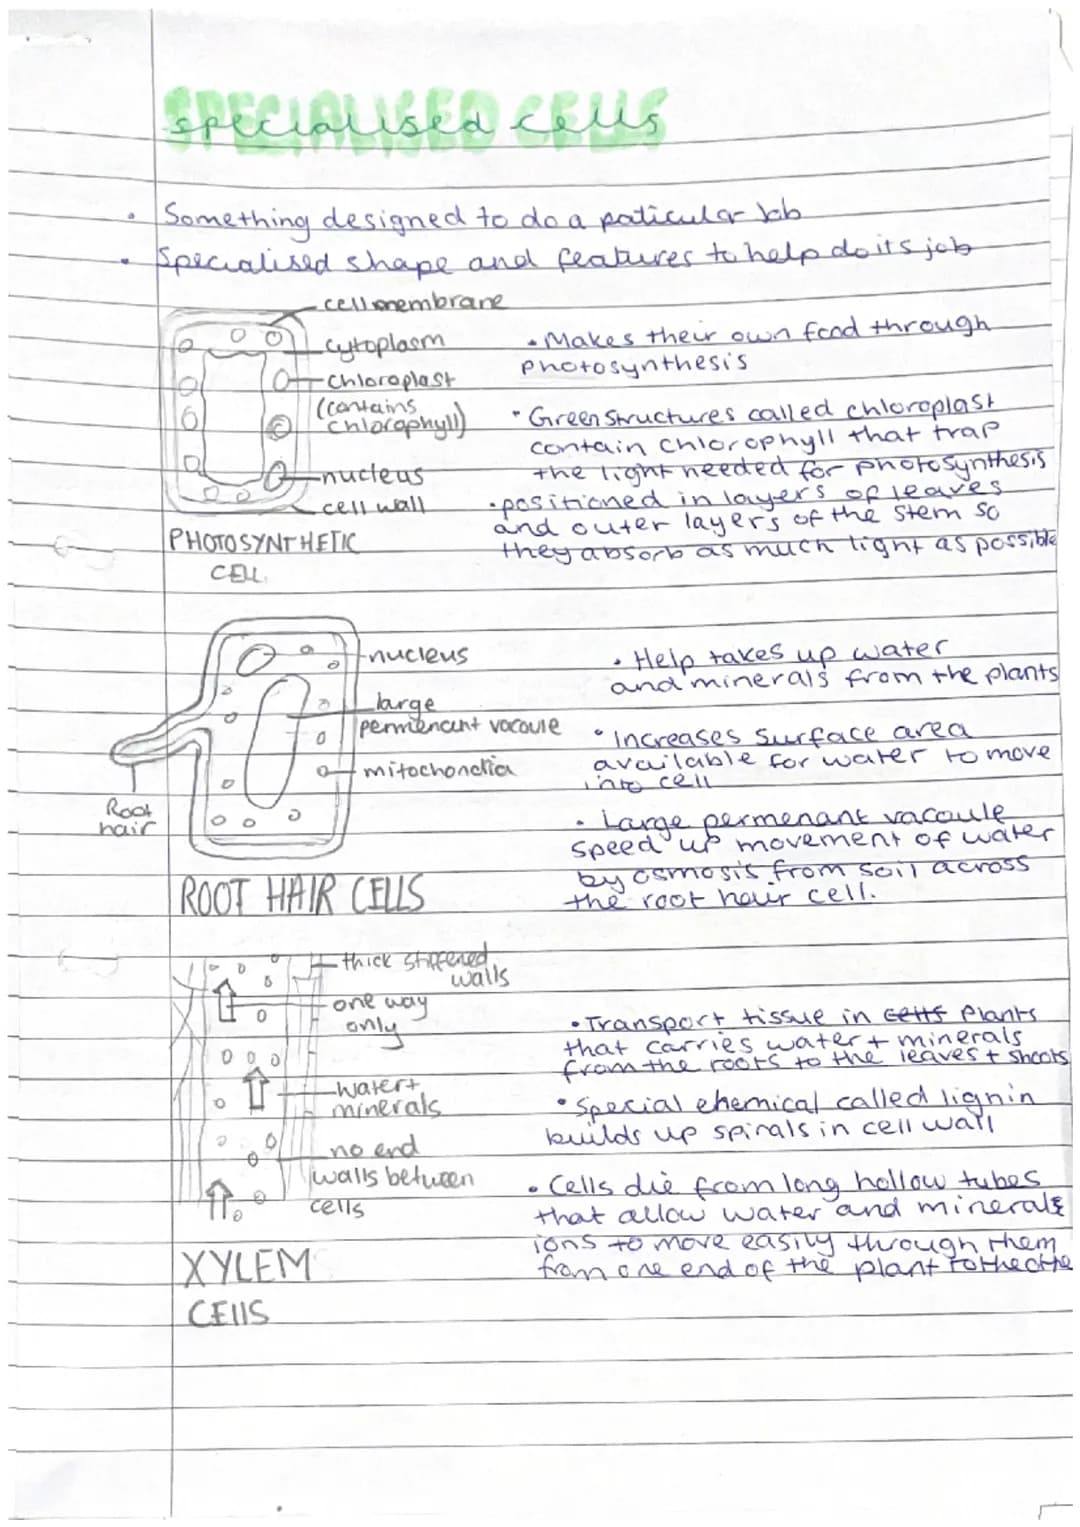 SPECIALISED CELLS
specialised cells
Something designed to do a paticular Job
Specialised shape and features to help do its job
cell membrane
cytoplasm
chloroplast
(contains
chlorophyll)
nucleus
cell wall
PHOTOSYNTHETIC
CELL.
• Makes their own food through
photosynthesis
• Green structures called chloroplast
contain chlorophyll that trap
the light needed for photosynthesis
• positioned in layers of leaves
and outer layers of the stem so
they absorb as much light as possible
nucleus
large
permenant vacoule
mitochondia
Root
hair
ROOT HAIR CELLS
• Help takes up water
and minerals from the plants
• Increases surface area
available for water to move
into cell
• Large permenant vacoule
speed up movement of water
by osmosis from soil across
the root hair cell.
thick stiffened
walls
one way
only
water +
minerals
no end
walls between
cells
XYLEM
CEllS
• Transport tissue in cells Plants
that carries water + minerals
from the roots to the leaves + shoots
• Special chemical called lignin
builds up spirals in cell wall
• Cells die from long hollow tubes
that allow water and minerals
ions to move easily through them
from one end of the plant to the othe